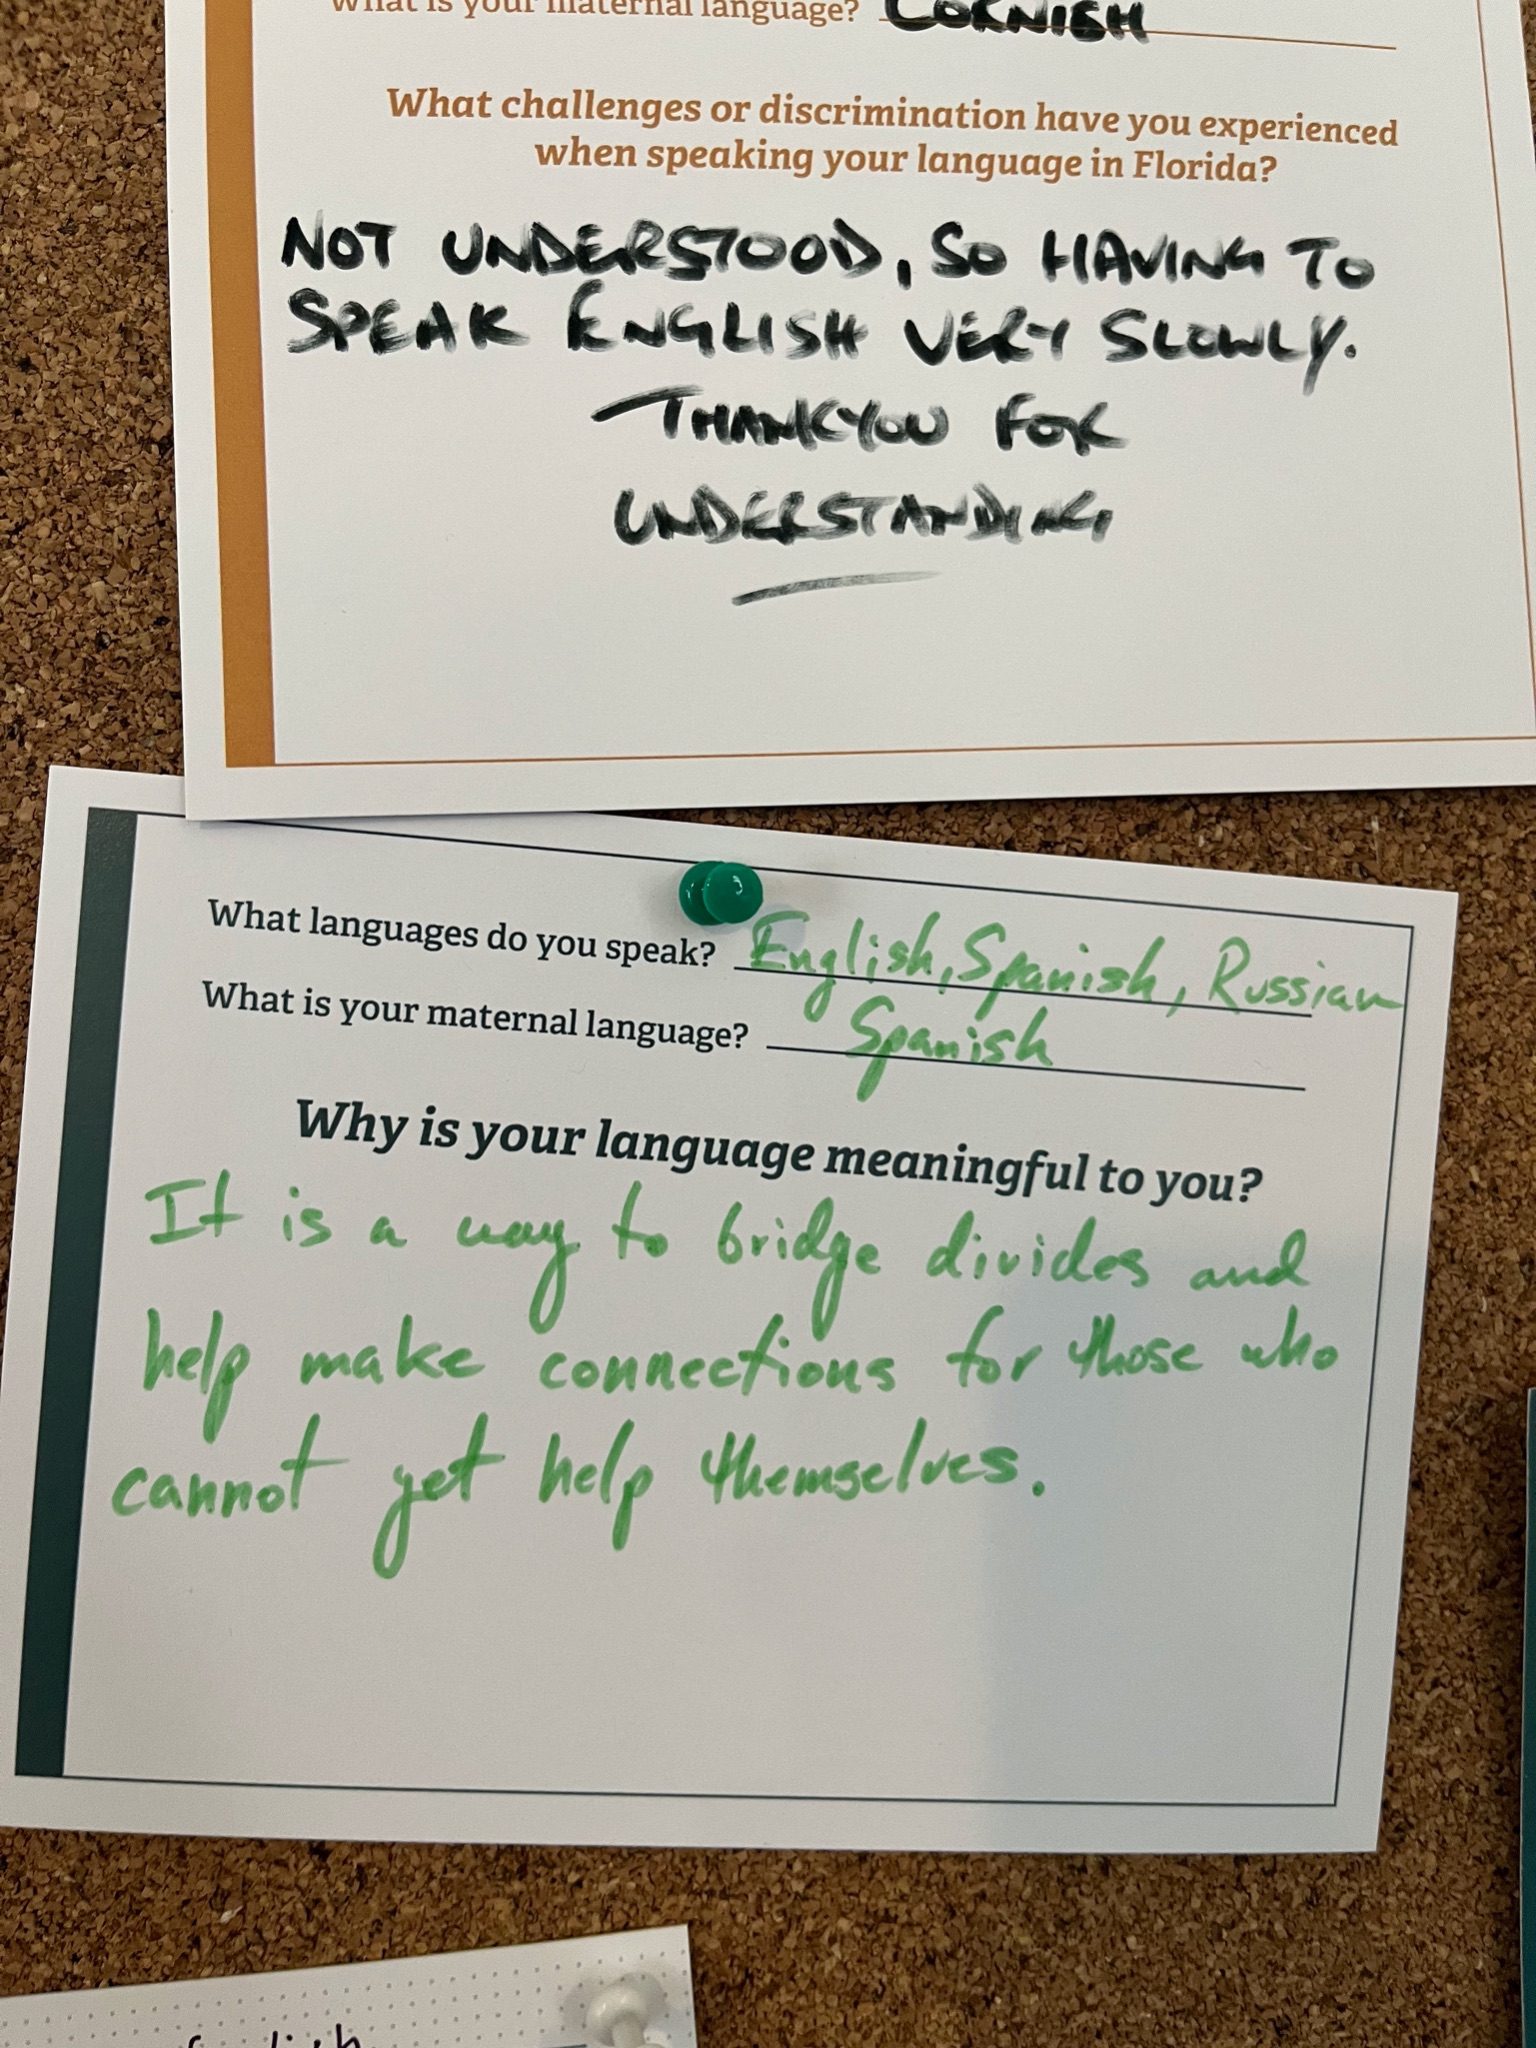 What is your maternal language? CORNISH
What challenges or discrimination have you experienced
when speaking your language in Florida?
NOT UNDERSTOOD, SO HAVING TO
SPEAK ENGLISH VERY SLOWLY.
THANKYOU FOR
UNDERSTANDING
What languages do you speak? English, Spanish, Russian
What is your maternal language? Spanish
Why is your language meaningful to you?
It is a way to bridge divides and
help make connections for those who
cannot get help themselves.